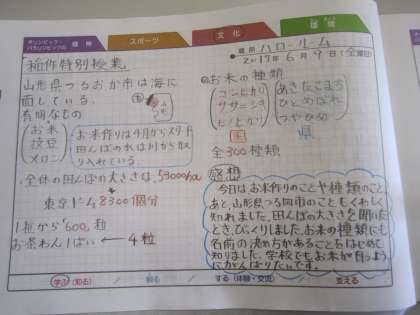 オリンピック・
パラリンピックの 精神
スポーツ
文化
環境
場所 ハロールーム
2017年 6月 9日(金曜日)
「稲作特別授業」
山形県つるおか市は海に
面している。
有名なもの
お米
枝豆
メロン
お米作りは4月からスタート
田んぼの水は川から取
り入れている。
全体の田んぼの大きさは、
東京ドーム8300個分
1粒から600粒
お茶わん1ぱい ← 4粒
お米の種類
コシヒカリ
ササニシキ
ヒノヒカリ
国
あきたこまち
ひとめぼれ
つやひめ
県
全300種類
感想
今日は、お米作りのことや種類のこと
あと、山形県つる岡市のこともくわしく
知れました。田んぼの大きさを聞いた
とき、びっくりしました。お米の種類にも
名前の決め方があることもはじめて
知りました。学校でもお米が育つよう
にがんばりたいです。
学ぶ(知る)
観る
する(体験・交流)
支える